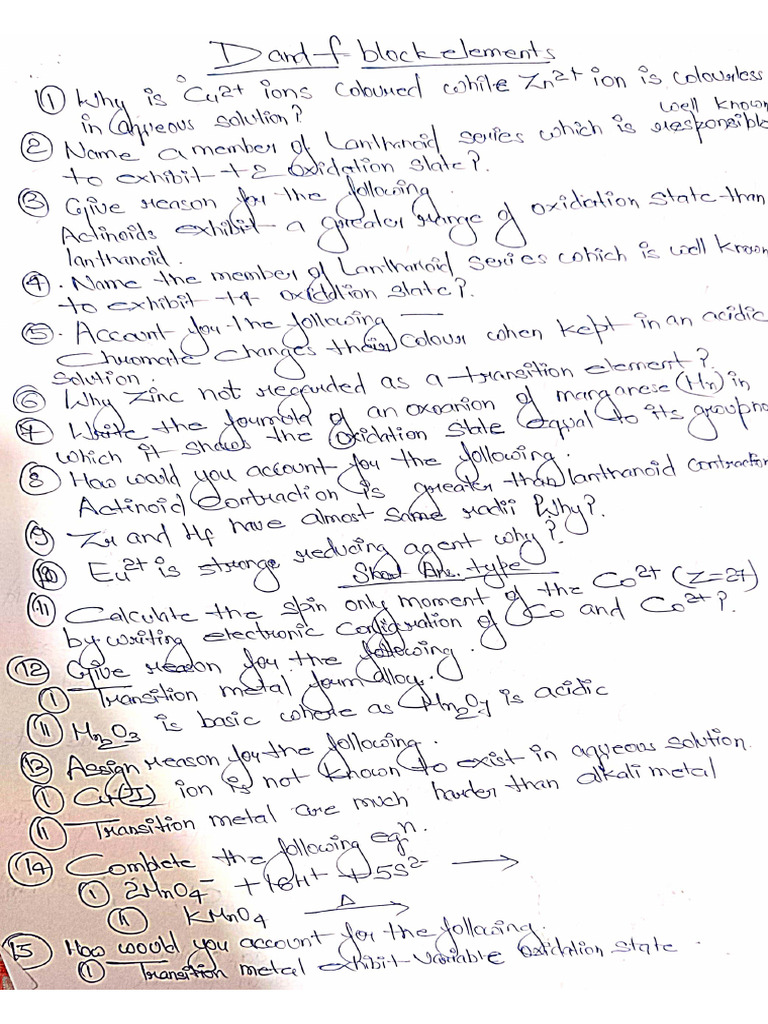 D and f block elements
① Why is Cu2+ ions coloured while Zn2+ ion is colourless
in aqueous solution?
② Name a member of Lanthanoid series which is well known responsible
to exhibit +2 oxidation state?
③ Give reason for the following.
Actinoids exhibit a greater range of oxidation state than
lanthanoid.
④. Name the member of Lanthanoid series which is well known
to exhibit +4 oxidation state?
⑤. Account for the following —
Chromate changes their colour when kept in an acidic
solution.
⑥ Why Zinc not regarded as a transition element?
⑦ Write the formula of an oxoanion of manganese (Mn) in
which it shows the oxidation state equal to its group no
⑧ How would you account for the following.
Actinoid contraction is greater than lanthanoid contraction
⑨ Zr and Hf have almost same radii Why?
⑩ Eu2+ is strong reducing agent why?
Short Ans. type
⑪ Calculate the spin only moment of the Co2+ (Z=27)
by writing electronic configuration of Co and Co2+?
⑫ Give reason for the following.
① Transition metal form alloy.
⑪ Mn2O3 is basic where as Mn2O7 is acidic
⑬ Assign reason for the following.
① Cu(I) ion is not known to exist in aqueous solution.
⑪ Transition metal are much harder than alkali metal
⑭ Complete the following eqn.
① 2MnO4- + 16H+ + 5S2- ⟶
⑪ KMnO4 Δ⟶
⑮ How would you account for the following.
① Transition metal exhibit variable oxidation state.